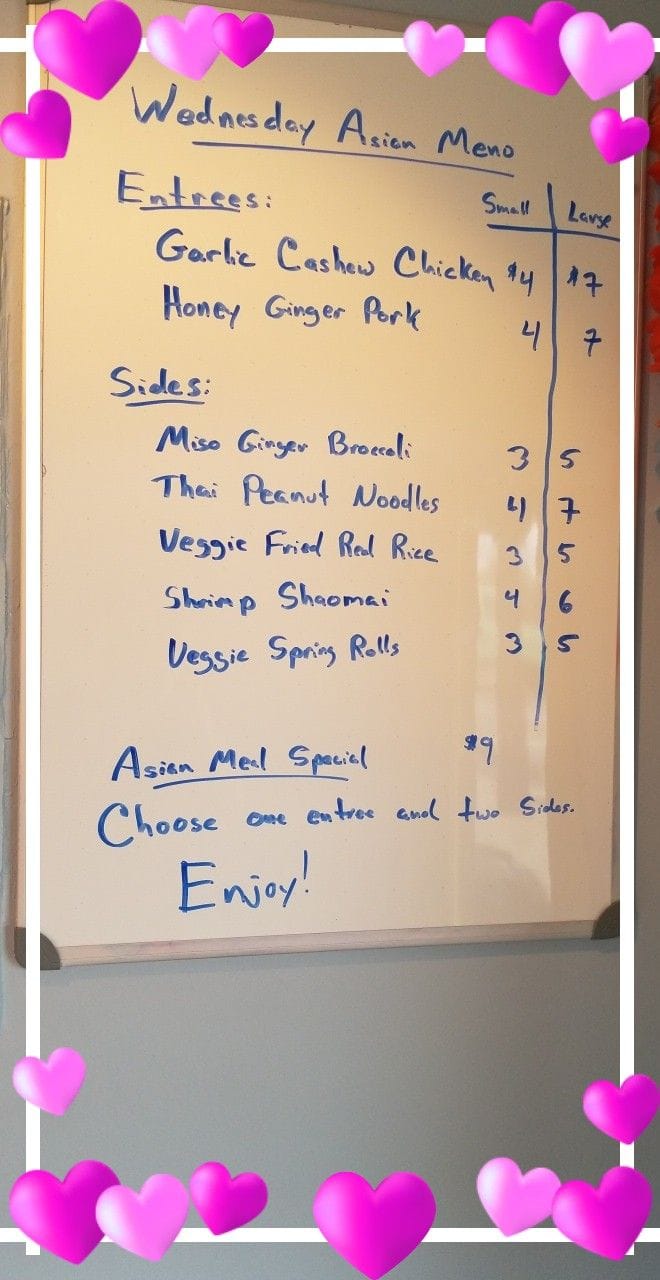 Wednesday Asian Meno
Entrees: Small Large
Garlic Cashew Chicken $4 $7
Honey Ginger Pork 4 7
Sides:
Miso Ginger Broccoli 3 5
Thai Peanut Noodles 4 7
Veggie Fried Red Rice 3 5
Shrimp Shaomai 4 6
Veggie Spring Rolls 3 5
Asian Meal Special $9
Choose one entree and two Sides.
Enjoy!